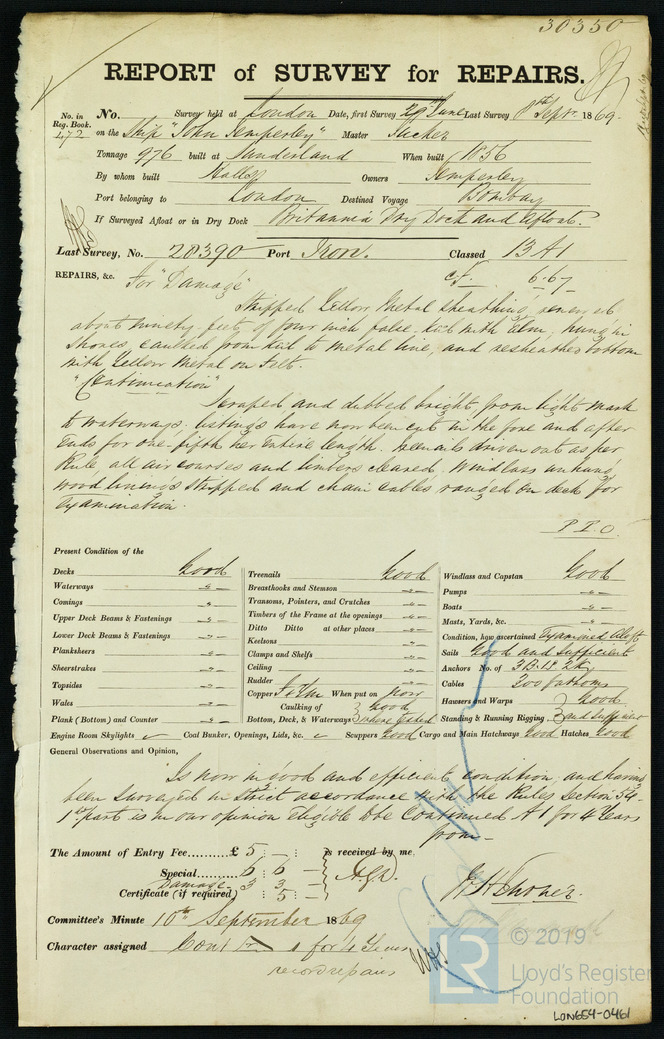 30350
REPORT of SURVEY for REPAIRS.
No. in Reg. Book. 472
No. Survey held at London Date, first Survey 29th June Last Survey 8th Sepr. 1869.
on the Ship "John Temperley" Master Tucker
Tonnage 976 built at Sunderland When built 1856
By whom built Owners Temperley
Port belonging to London Destined Voyage Bombay
If Surveyed Afloat or in Dry Dock Britannia Dry Dock and Afloat.
Last Survey, No. 20390 Port Iron. Classed 13 A1
REPAIRS, &c. For "Damage" 6.67
Stripped Yellow Metal Sheathing, renewed
about ninety feet of four inch false Keel with Elm, hung in
Shores, caulked from Keel to metal line, and resheathed bottom
with Yellow Metal on Felt.
"Continuation"
Scraped and dubbed bright, from light mark
to waterways. listings have now been cut in the fore and after
Ends for one fifth her entire length. Treenails driven out as per
Rule, all air courses and limbers cleared. Windlass unhung,
wood linings stripped and chain cables ranged on deck for
Examination.
P.T.O.
Present Condition of the
Decks Good
Waterways " —
Comings " —
Upper Deck Beams & Fastenings " —
Lower Deck Beams & Fastenings " —
Planksheers " —
Sheerstrakes " —
Topsides " —
Wales " —
Plank (Bottom) and Counter " —
Treenails Good
Breasthooks and Stemson " —
Transoms, Pointers, and Crutches " —
Timbers of the Frame at the openings " —
Ditto Ditto at other places " —
Keelsons " —
Clamps and Shelfs " —
Ceiling " —
Rudder " —
Copper When put on now
Caulking of Good
Bottom, Deck, & Waterways where tested
Windlass and Capstan Good
Pumps " —
Boats " —
Masts, Yards, &c. " —
Condition, how ascertained Examined Aloft
Sails Good and sufficient
Anchors No. of 3 B. 1 S. 2 K.
Cables 200 fathoms
Hawsers and Warps Good
Standing & Running Rigging and sufficient
Engine Room Skylights ✓ Coal Bunker, Openings, Lids, &c. ✓ Scuppers Good Cargo and Main Hatchways Good Hatches Good
General Observations and Opinion,
Is now in good and efficient condition, and having
been surveyed in strict accordance with the Rules Section 54
1st part is in our opinion eligible to be Continued A1 for 4 Years
from —
The Amount of Entry Fee.......... £ 5 : — : is received by me,
Special......... 6 : 6 : —
Damage 3 3 —
Certificate (if required) : 5 : —
Committee's Minute 10th September 1869
Character assigned Cont 1 for 4 Years
record repairs
© 2019
LR
Lloyd's Register
Foundation
LON654-0461